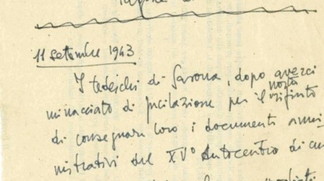 11 settembre 1943
I tedeschi di Savona, dopo averci
minacciato di fucilazione per il nostro rifiuto
di consegnare loro i documenti ammi
nistrativi del XV° Autocentro di cui